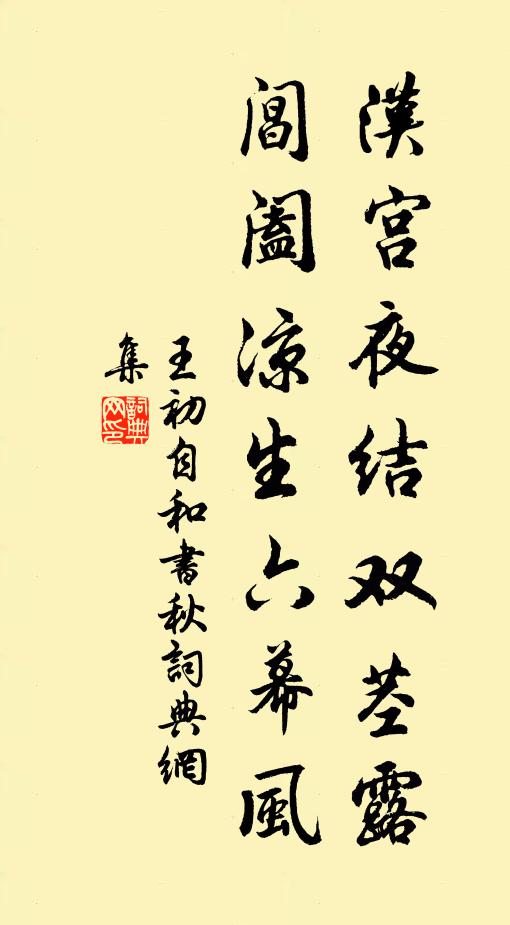 漢宫夜结双茎露
閶阖凉生六幕風
王初自和書秋詞典網
集
詞典网印